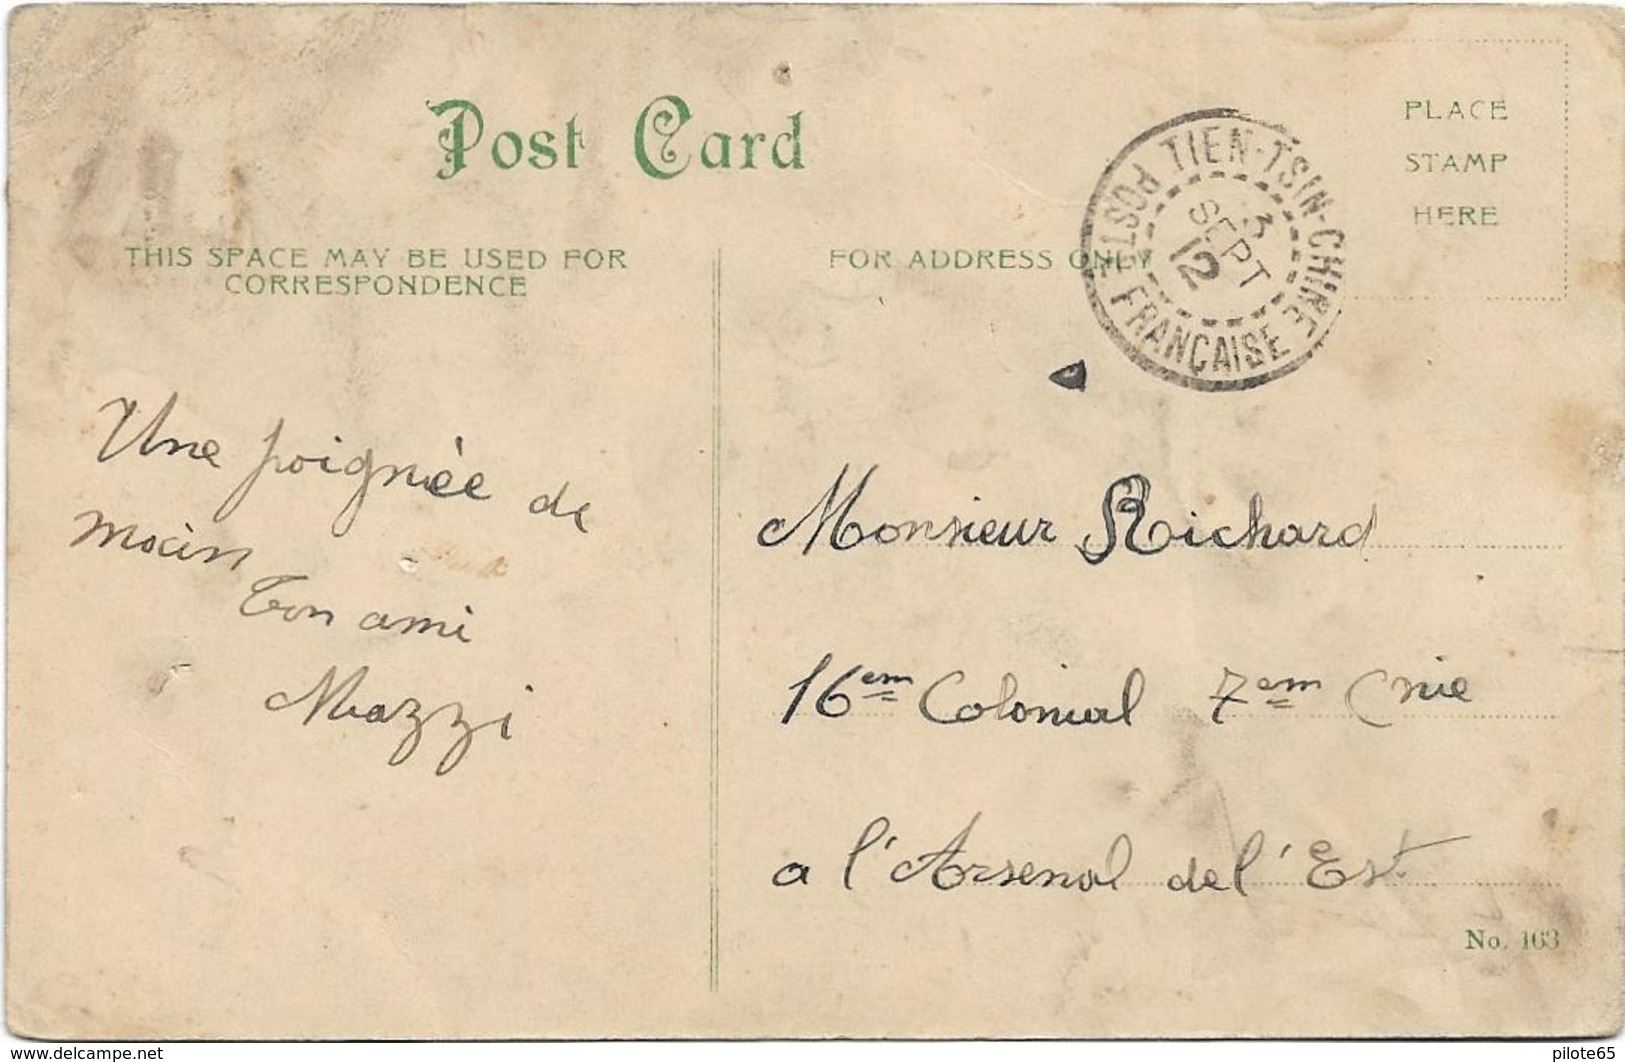 Post Card
PLACE
STAMP
HERE
TIEN-TSIN-CHINE
POSTE FRANÇAISE
3
SEPT
12
THIS SPACE MAY BE USED FOR
CORRESPONDENCE
FOR ADDRESS ONLY
Une poignèe de
main
Ton ami
Mazzi
Monsieur Richard
16em Colonial 7em Cnie
a l'Arsenal del'Est
No. 163
www.delcampe.net
pilote65